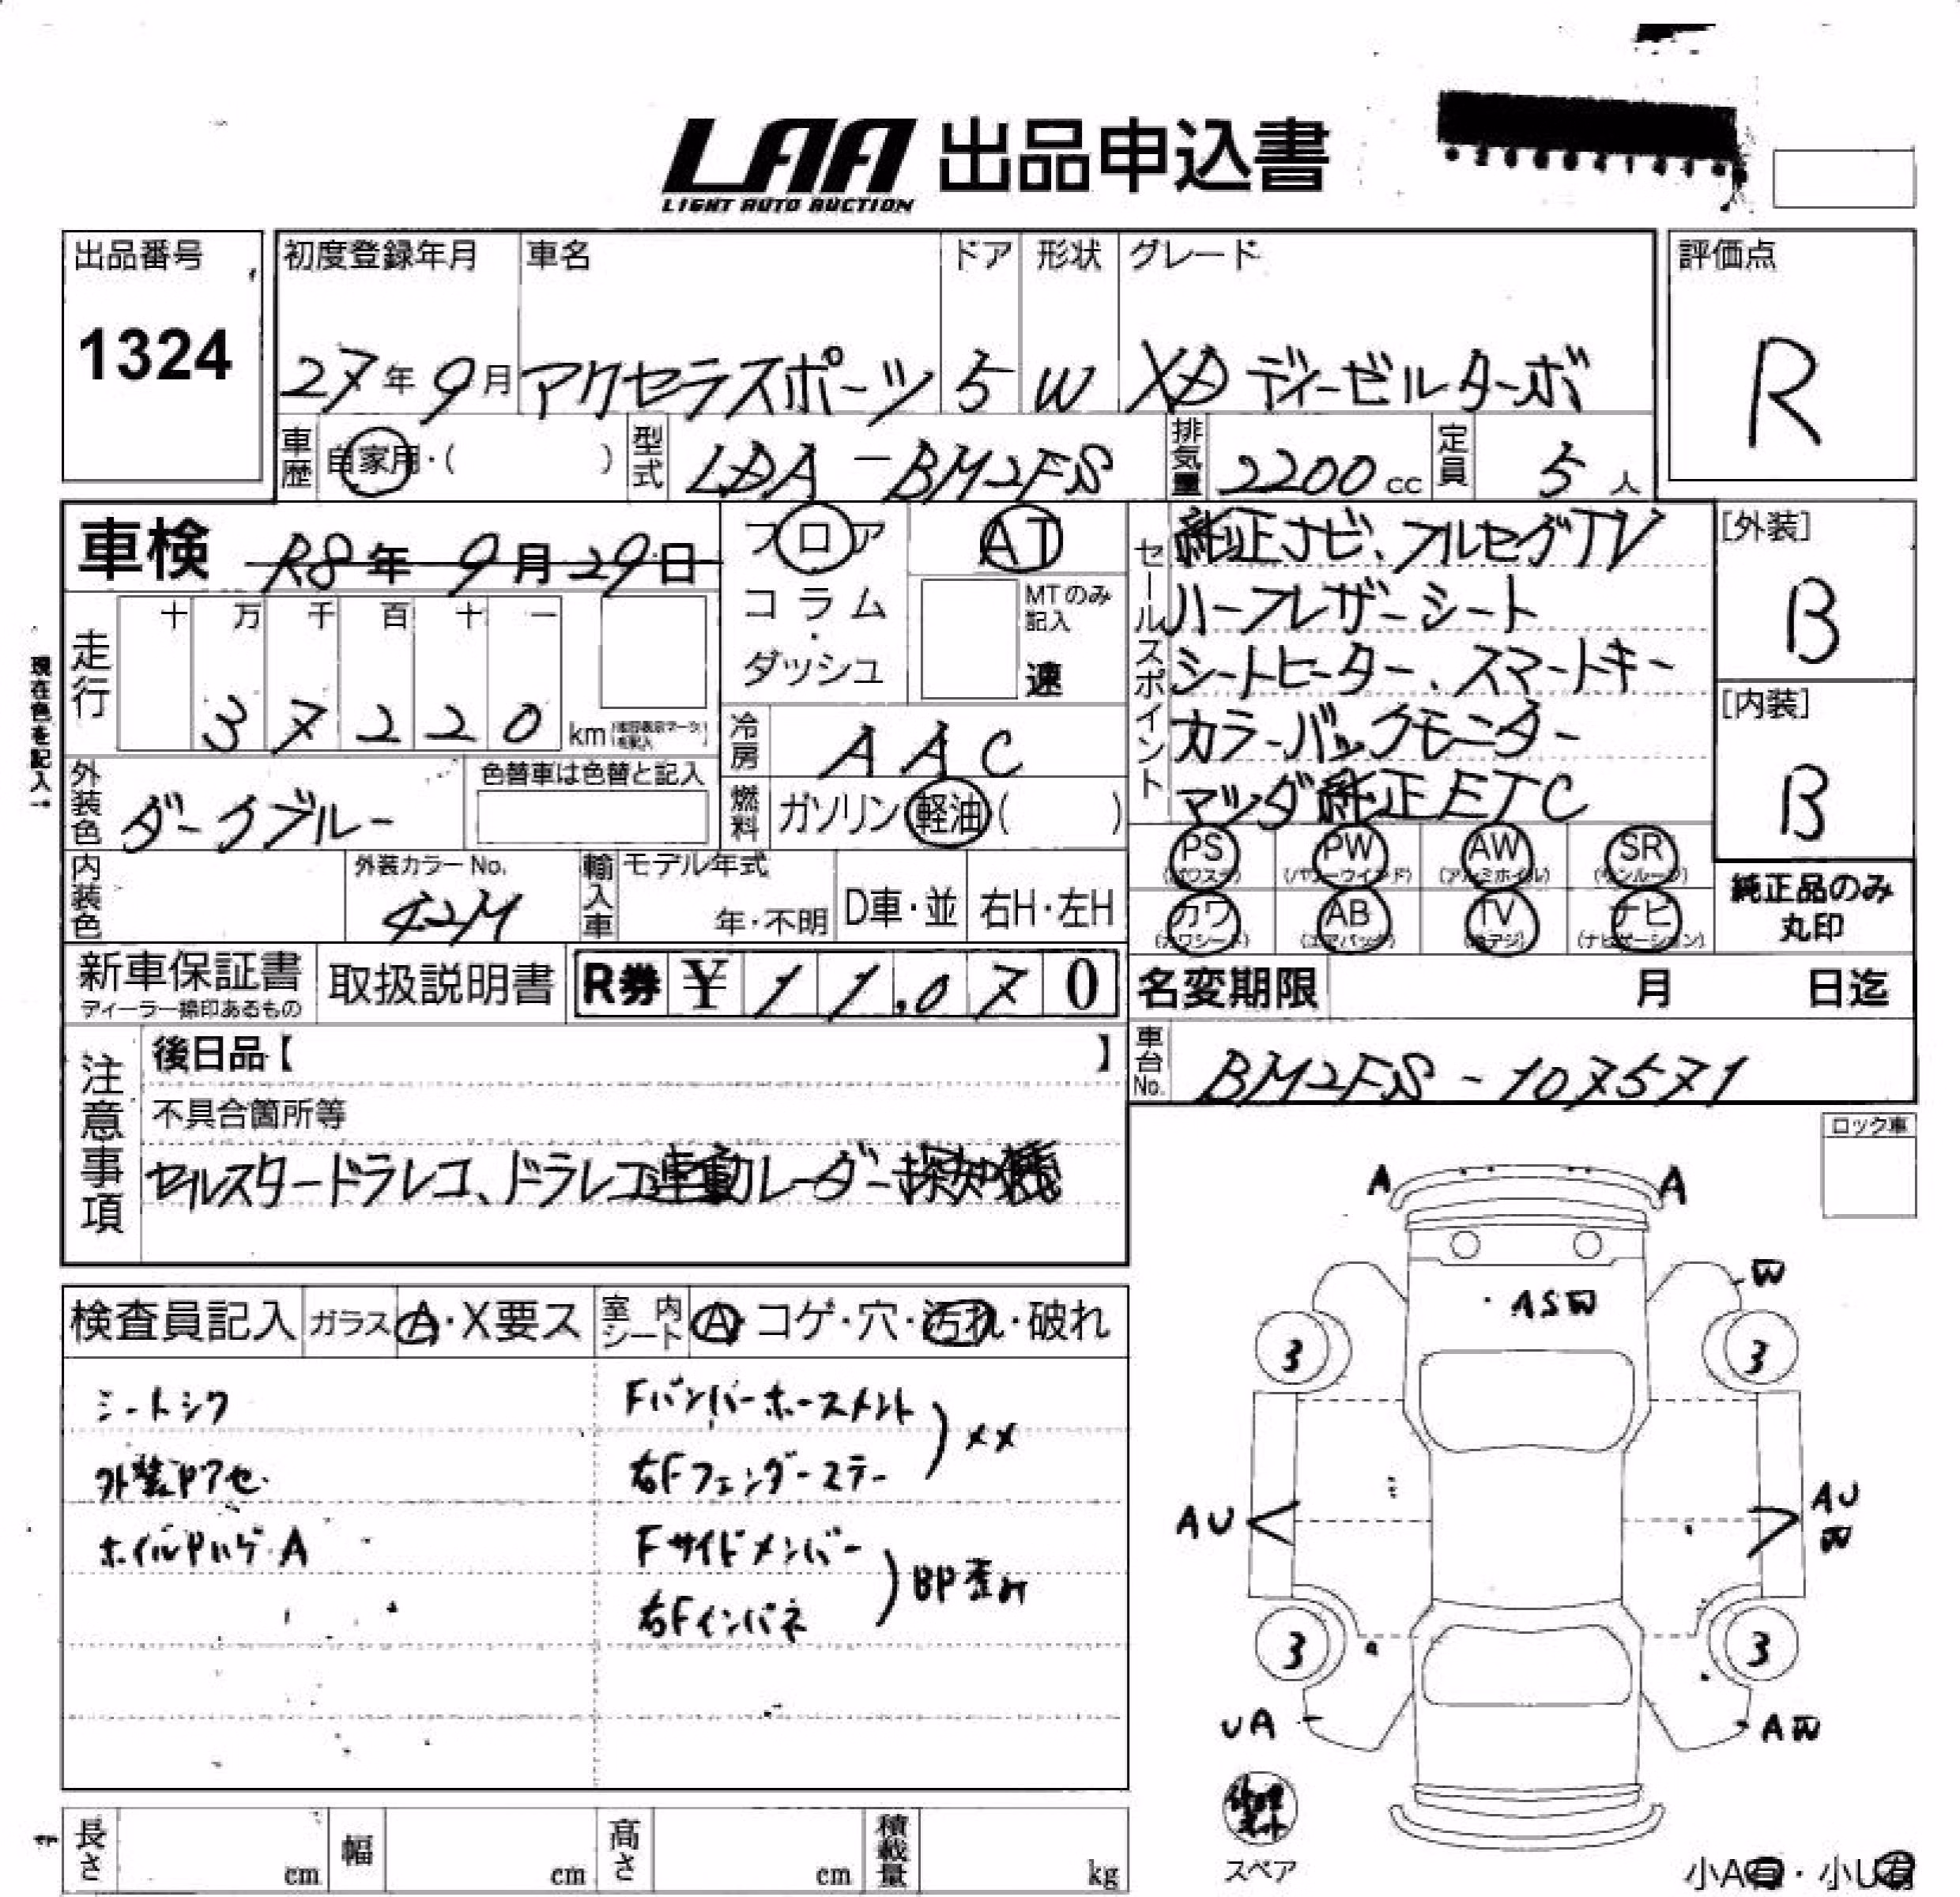 LAA 出品申込書
LIGHT AUTO AUCTION
出品番号 初度登録年月 車名 ドア 形状 グレード 評価点
1324 27年9月 アクセラスポーツ 5 W XD ディーゼルターボ R
車歴 自家用・( ) 型式 LDA-BM2FS 排気量 2200cc 定員 5人
車検 R8年9月29日
フロア AT
コラム・
ダッシュ
MTのみ記入
速
セールスポイント
純正ナビ、フルセグTV
ハーフレザーシート
シートヒーター、スマートキー
カラーバックモニター
マツダ純正ETC
[外装]
B
[内装]
B
現在色を記入→
走行 十 万 千 百 十 一
3 7 2 2 0 km
冷房 AAC
外装色 ダークブルー 色替車は色替と記入
燃料 ガソリン 軽油 ( )
PS (パワステ) PW (パワーウインド) AW (アルミホイル) SR (サンルーフ)
カワ (カワシート) AB (エアバック) TV (地デジ) ナビ (ナビゲーション)
純正品のみ
丸印
内装色 外装カラーNo. 42M 輸入車 モデル年式 年・不明 D車・並 右H・左H
新車保証書 取扱説明書 R券 ¥11,070
ディーラー捺印あるもの
名変期限 月 日迄
車台No. BM2FS-107571
注意事項
後日品【 】
不具合箇所等
セルスタードラレコ、ドラレコ連動レーダー探知機
ロック車
検査員記入 ガラス A・X要ス 室内シート A・コゲ・穴・汚れ・破れ
シートシワ
外装Pアセ
ホイルPハゲ・A
Fバンパーホースメント
右Fフェンダーステー
XX
Fサイドメンバー
右Fインパネ
BP歪み
A A
W
ASW
3 3
AU AU
W
3 3
UA AW
修理キット
スペア
小A有・小U有
長さ cm 幅 cm 高さ cm 積載量 kg